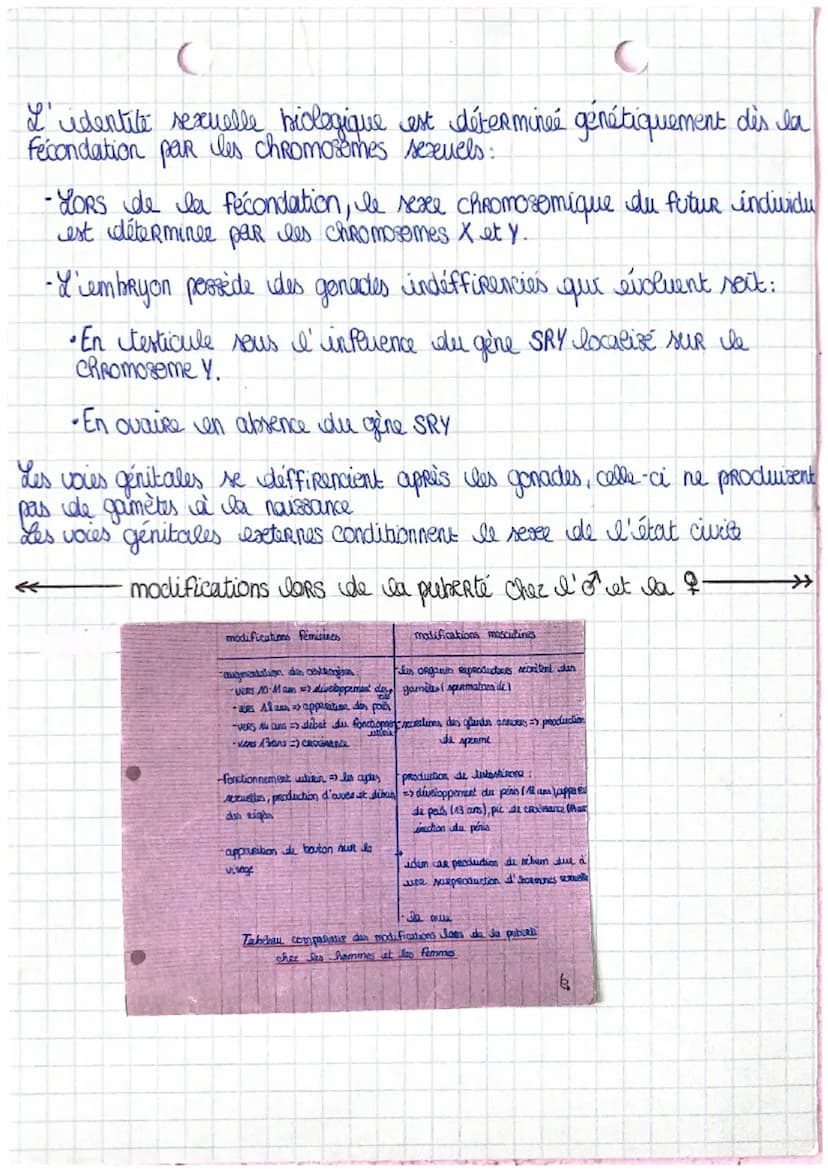 L'identité sexuelle biologique est déterminéé génétiquement dès la
fécondation par les chromosomes sexuels:
- Lors de la fécondation, le sexe chromosomique du futur individu
est déterminée par les chromosomes X et Y.
- L'embryon possède des gonades indéffirenciés qui évoluent soit:
• En testicule sous l'influence du gène SRY localisé sur le
chromosome Y.
• En ovaire en absence du gène SRY
Les voies génitales se déffirencient après les gonades, celle-ci ne produisent
pas de gamètes à la naissance
Les voies génitales externes conditionnent le sexe de l'état civil
modifications lors de la puberté chez l'♂ et la ♀
modifications féminines
modifications masculines
- augmentation des œstrogènes:
- vers 10-11 ans => développement des
- vers 12 ans => apparition des poils
- vers 14 ans => début du fonctionnement
utérin
- vers 13 ans => croissance
- fonctionnement utérin => les cycles
sexuelles, production d'ovules et début
des règles
- apparition de bouton sur le
visage
- les organes reproducteurs secrètent des
gamètes (spermatozoïde)
- secretions des glandes annexes => production
de sperme
- production de testostérone:
=> développement du pénis (12 ans)
de poils (13 ans), pic de croissance
érection du pénis
idem car production de sébum due à
une surproduction d'hormones sexuelle
- la mue
Tableau comparatif des modifications lors de la puberté
chez les hommes et les femmes